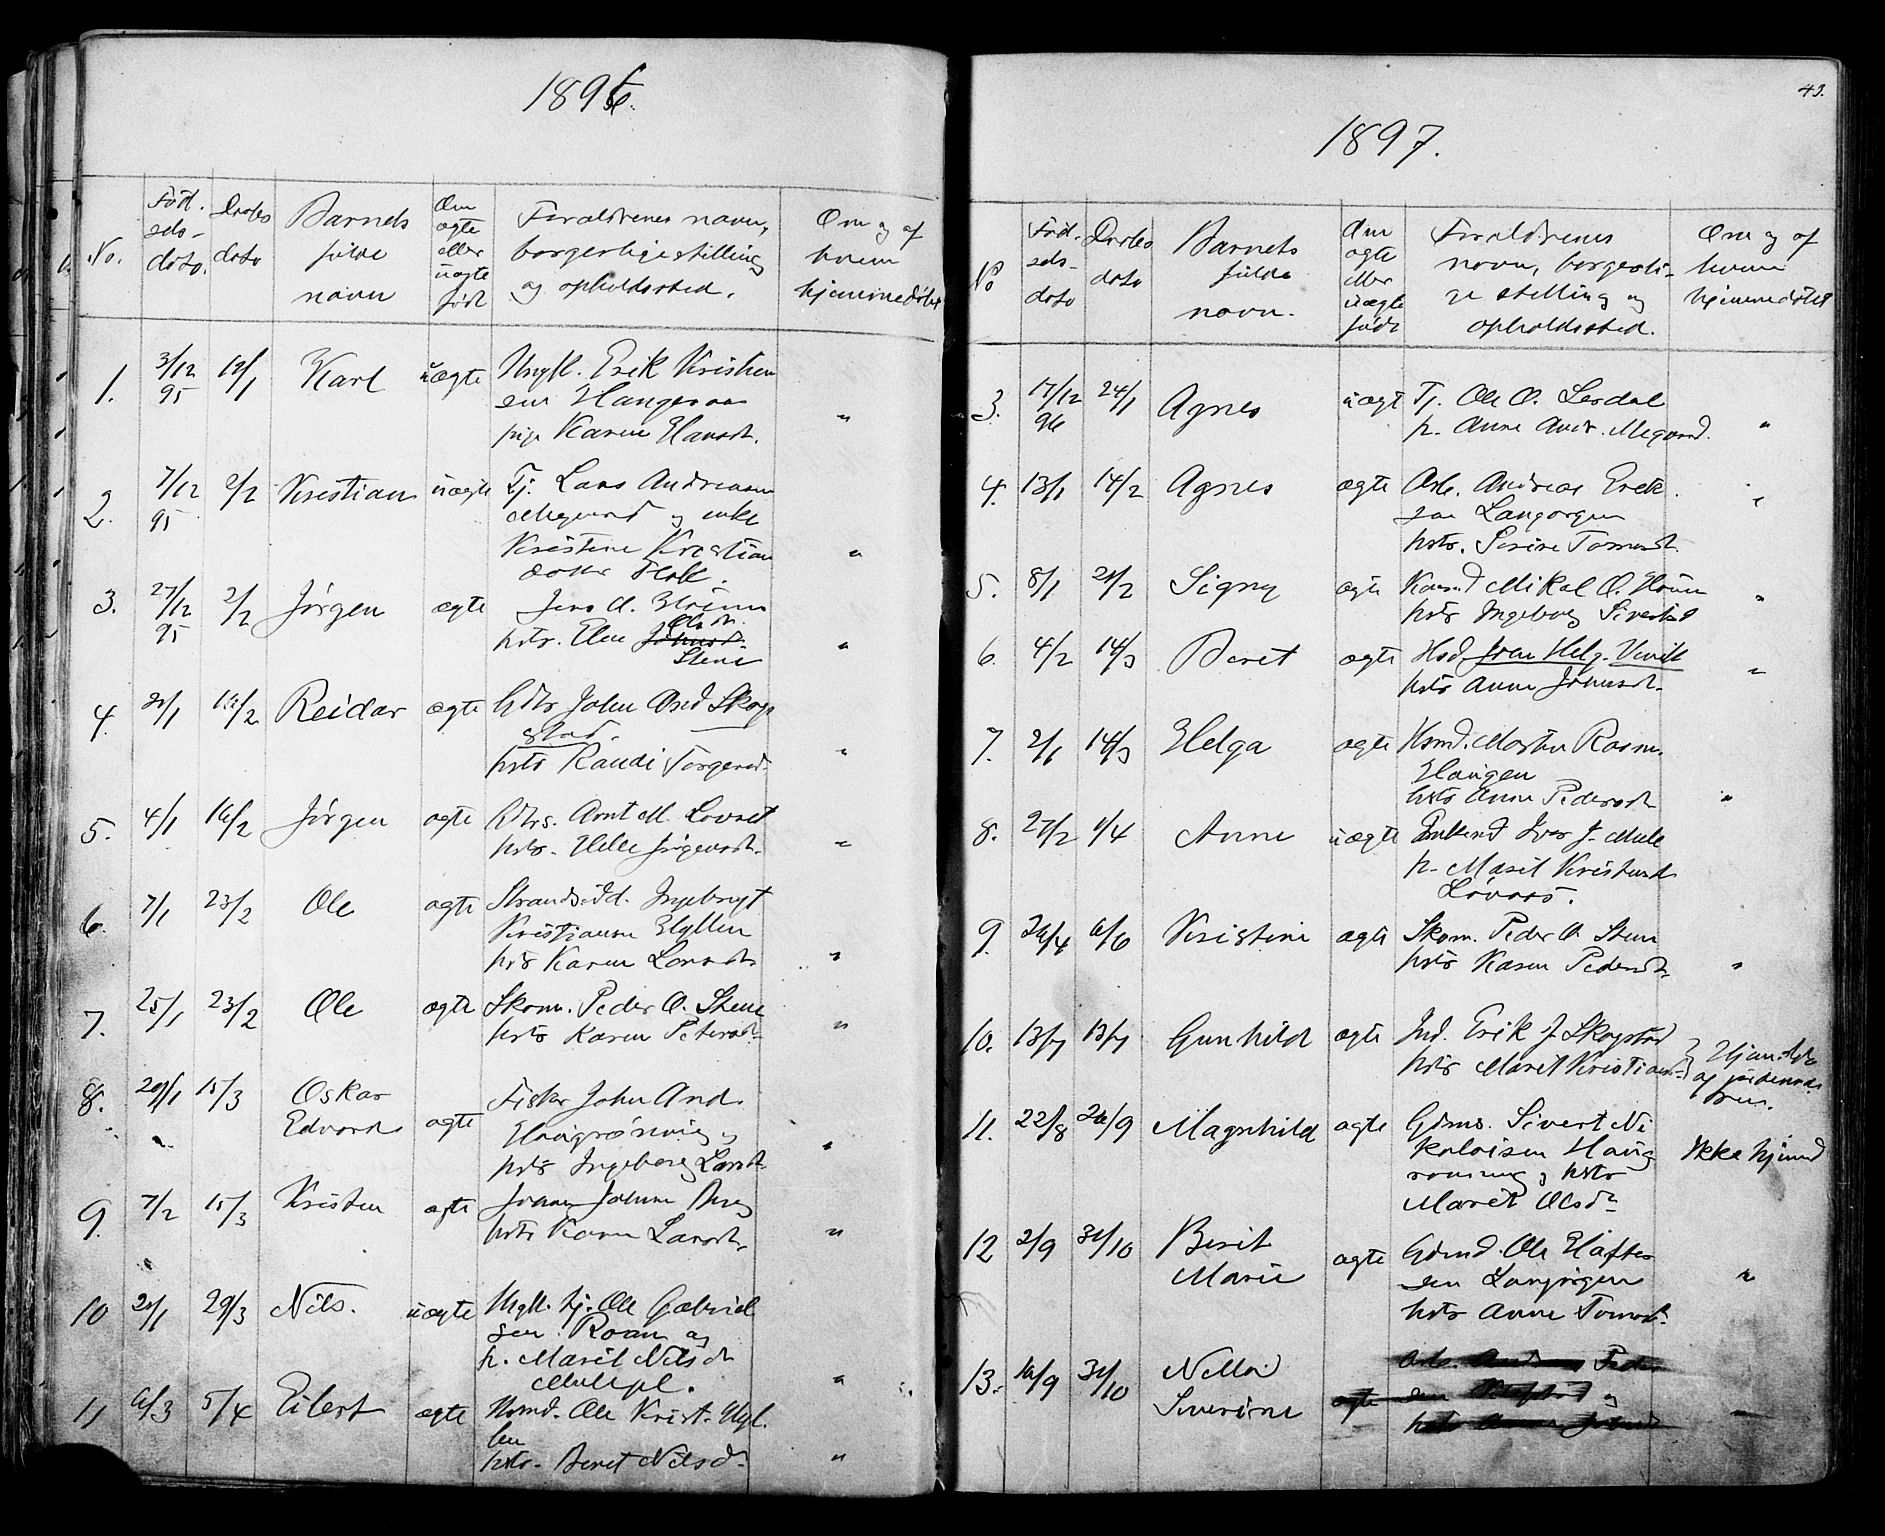 1896.
No.
Fød.
seds-
dato.
Daabs
dato
Barnets
fulde
navn
Om
ægte
eller
uægte
født
Forældrenes navn,
borgerlige stilling
og opholdssted.
Om og af
hvem
hjemmedøbt
1. 3/12 95 19/1 Karl uægte Ungk. Erik Kristian
sen Haugeraas
pige Karen Hansdt. "
2. 7/12 95 2/2 Kristian uægte Tj. Lars Andreasen
Megaard og enke
Kristine Kristian
datter
3. 27/12 95 2/2 Jørgen ægte Jens A.
Olsdt.
hstr. Elen Johnsdt.
Stene "
4. 21/1 16/2 Reidar ægte Gdbr John And Skog
stad.
hstr Randi Torgersd. "
5. 4/1 16/2 Jørgen ægte Gbrs. Arnt M. Lovset
hstr. Helle Jørgensdt. "
6. 7/1 23/2 Ole ægte Strandsid. Ingebrigt
Kristiansen Hyllen
hstr Karen Larsdt. "
7. 25/1 23/2 Ole ægte Skom. Peder O. Stene
hstr Karen Petersdt. "
8. 29/1 15/3 Oskar
Edvard ægte Fisker John And.
Haugrønning og
hstr Ingeborg Larsdt. "
9. 7/2 15/3 Kristen ægte Johan Johnsen
hstr Karen Larsdt. "
10 21/1 29/3 Nils. uægte Ungk. tj. Ole Gabriel
sen Roan og
p. Marit Nilsdt
"
11 6/3 5/4 Eilert ægte Husmd. Ole Krist. Hyl
len
hstr. Beret Nilsd. "
43.
1897.
No
Fød.
seds-
dato
Daabs
dato
Barnets
fulde
navn.
Om
ægte
eller
uægte
født
Forældrenes
navn, borgerli-
ge stilling og
opholdssted.
Om og af
hvem
hjemmedøbt
3. 17/12 96 24/1 Agnes uægt Tj. Ole O. Lerdal
p. Anne Andr. Megaard. "
4. 13/1 14/2 Agnes ægte Arb. Andreas Erik
sen Langørgen
hstr. Serine Tomasdt. "
5. 8/1 21/2 Signy ægte Mikal O.
hstr Ingeborg Sivertsd "
6. 4/2 14/3 Beret ægte Helg.
hstr Anne Johnsdt. "
7. 2/1 14/3 Helga ægte Husmd. Morten Rasm.
Haugen
hstr Anne Pedersdt "
8. 27/2 1/4 Anne uægte Enkemd Ivar J.
p. Marit Kristensd
Løvaas.
9. 26/4 6/6 Kristine ægte Skom. Peder O. Stene
hstr Karen Pedersdt. "
10. 13/7 13/7 Gunhild ægte Ind. Erik J Skogstad
hstr Marit Kristians-
Hjemdøbt
af jordemod.
11. 22/8 26/9 Magnhild ægte Gdms. Sivert Ni
kolaisen Haug
rønning og hstr
Marit Olsd. Ikke hjemd
12 2/9 31/10 Berit
Marie ægte Gdmd. Ole Hafter
sen Langørgen
hstr Anne Tomasdt. "
13. 16/9 31/10
Severine ægte Arb. Peder
sen og
hstr "